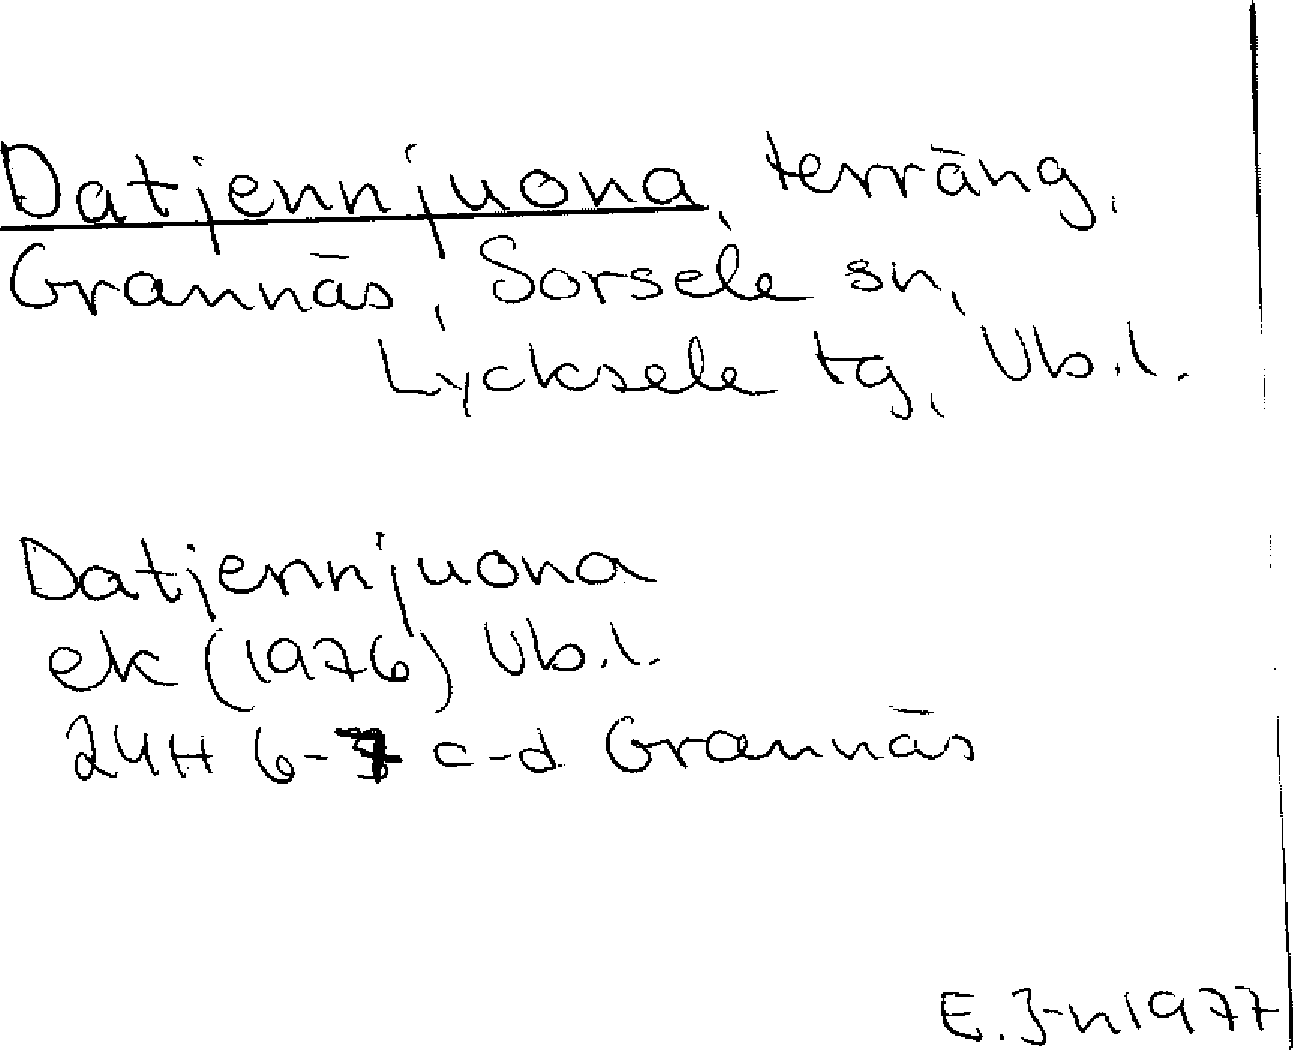 Datjennjuona, terräng,
Grannäs, Sorsele sn,
Lycksele tg, Vb.l.
Datjennjuona
ek (1976) Vb.l.
24H 6-7 c-d Grannäs
E. J-n 1977